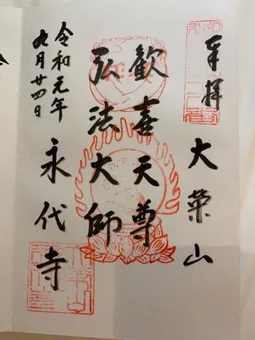 奉拝
大榮山
歡喜天尊
弘法大師
令和元年
九月廿四日
永代寺